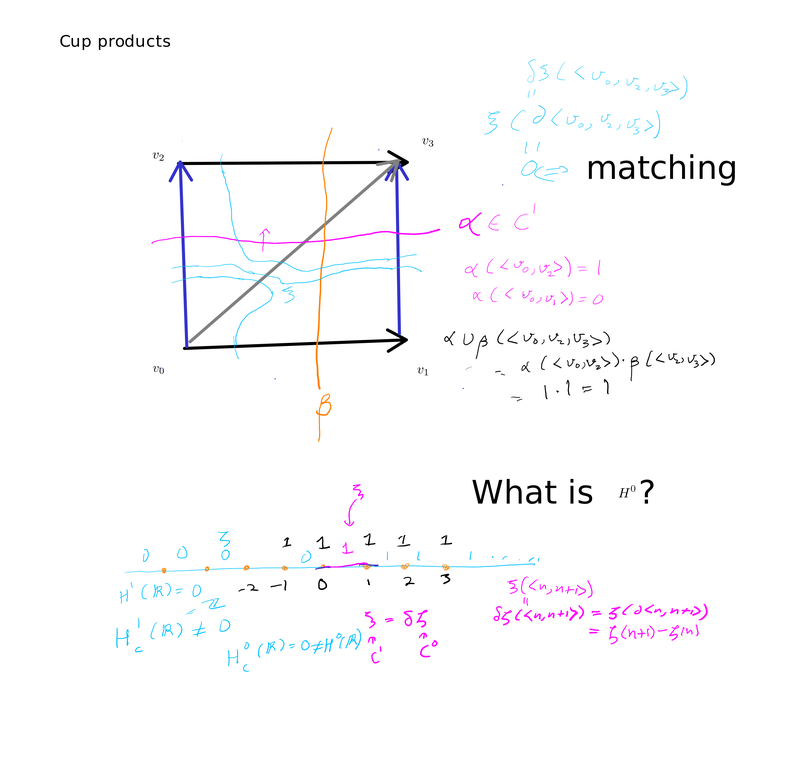 Cup products
δξ(<v₀,v₂,v₃>)
=
ξ(∂<v₀,v₂,v₃>)
=
0 ⇔ matching
v₂
v₃
α ∈ C¹
α(<v₀,v₂>) = 1
α(<v₀,v₁>) = 0
ξ
α∪β(<v₀,v₂,v₃>)
= α(<v₀,v₂>)·β(<v₂,v₃>)
= 1·1 = 1
v₀
v₁
β
What is H⁰?
ξ
0 0 0 0 1 1 1 1 1 1 1 1 1 ....
-2 -1 0 1 2 3
H¹(ℝ) = 0
H¹_c(ℝ) ≠ 0
≅ ℤ
H⁰_c(ℝ) = 0 ≠ H⁰(ℝ)
ξ = δζ
C¹ C⁰
ξ(<n,n+1>)
=
δζ(<n,n+1>) = ζ(∂<n,n+1>)
= ζ(n+1) - ζ(n)